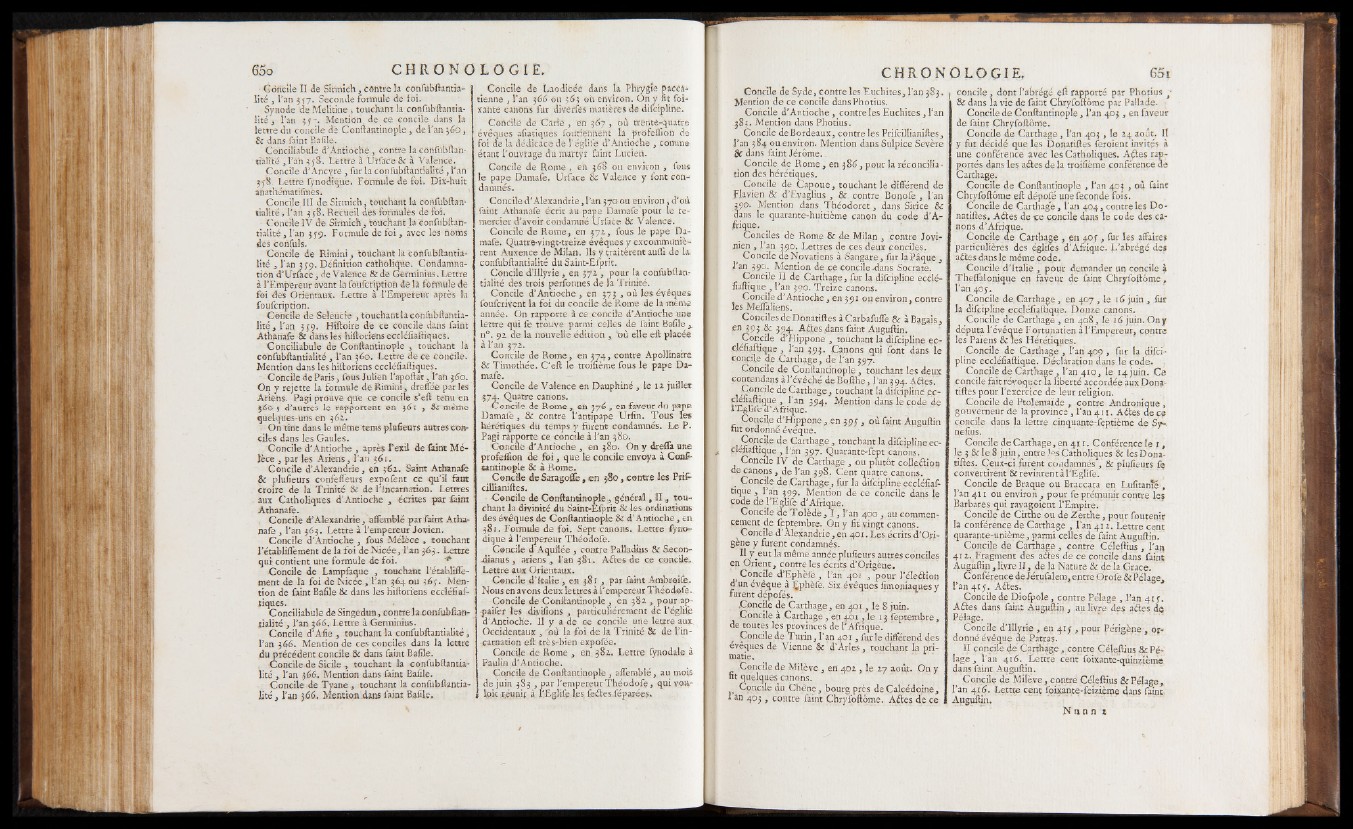 650 CHRONOLOGIE.
Concile II de Sirmich, contre la conſubſtantia-
lité, l'an 357. Seconde formule de foi.
Synode de Melitine, touchant la conſubſtantia-
lité, l'an 357. Mention de ce concile dans la
lettre du concile de Conſtantinople, de l'an 360,
& dans ſaint Baſile.
Conciliabule d'Antioche, contre la conſubſtan-
tialité, l'an 358. Lettre à Urſace & à Valence.
Concile d'Ancyre, ſur la conſubſtantialité, l'an
358. Lettre ſynodique. Formule de foi. Dix-huit
anathématiſmes.
Concile III de Sirmich, touchant la conſubſtan-
tialité, l'an 358. Recueil des formules de foi.
Concile IV de Sirmich, touchant la conſubſtan-
tialité, l'an 359. Formule de foi, avec les noms
des conſuls.
Concile de Rimini, touchant la conſubſtantia-
lité, l'an 359. Définition catholique. Condamna-
tion d'Urſace, de Valence & de Germinius. Lettre
à l'Empereur avant la ſouſcription de la formule de
foi des Orientaux. Lettre à l'Empereur après la
ſouſcription.
Concile de Seleucie, touchant la conſubſtantia-
lité, l'an 359. Hiſtoire de ce concile dans ſaint
Athanaſe & dans les hiſtoriens eccléſiaſtiques.
Conciliabule de Conſtantinople, touchant la
conſubſtantialité, l'an 360. Lettre de ce concile.
Mention dans les hiſtoriens eccléſiaſtiques.
Concile de Paris, ſous Julien l'apoſtat, l'an 360.
On y rejette la formule de Rimini, dreſſée par les
Ariens. Pagi prouve que ce concile s'eſt tenu en
360; d'autres le rapportent en 361, & même
quelques-uns en 362.
On tint dans le même tems pluſieurs autres con-
ciles dans les Gaules.
Concile d'Antioche, après l'exil de ſaint Mé-
lèce, par les Ariens, l'an 361.
Concile d'Alexandrie, en 362. Saint Athanaſe
& pluſieurs confeſſeurs expoſent ce qu'il faut
croire de la Trinité & de l'incarnation. Lettres
aux Catholiques d'Antioche, écrites par ſaint
Athanaſe.
Concile d'Alexandrie, aſſemblé par ſaint Atha-
naſe, l'an 363. Lettre à l'empereur Jovien.
Concile d'Antioche, ſous Mélèce, touchant
l'établiſſement de la foi de Nicée, l'an 363. Lettre
qui contient une formule de foi.
Concile de Lampſaque, touchant l'établiſſe-
ment de la foi de Nicée, l'an 364 ou 365. Men-
tion de ſaint Baſile & dans les hiſtoriens eccléſiaſ-
tiques.
Conciliabule de Singedun, contre la conſubſtan-
tialité, l'an 366. Lettre à Germinius.
Concile d'Aſie, touchant la conſubſtantialité,
l'an 366. Mention de ces conciles dans la lettre
du précédent concile & dans ſaint Baſile.
Concile de Sicile, touchant la conſubſtantia-
lité, l'an 366. Mention dans ſaint Baſile.
Concile de Tyane, touchant la conſubſtantia-
lité, l'an 366. Mention dans ſaint Baſile.
Concile de Laodicée dans la Phrygie pacca-
tienne, l'an 366 ou 363 ou environ. On y fit ſoi-
xante canons ſur diverſes matières de diſcipline.
Concile de Carie, en 367, où trente-quatre
évêques aſiatiques ſoutiennent la profeſſion de
foi de la dédicace de l'égliſe d'Antioche, comme
étant l'ouvrage du martyr ſaint Lucien.
Concile de Rome, en 368 ou environ, ſous
le pape Damaſe. Urſace & Valence y ſont con-
damnés.
Concile d'Alexandrie, l'an 370 ou environ, d'où
ſaint Athanaſe écrit au pape Damaſe pour le re-
mercier d'avoir condamné Urſace & Valence.
Concile de Rome, en 372, ſous le pape Da-
maſe. Quatre-vingt-treize évêques y excommuniè-
rent Auxence de Milan. Ils y traitèrent auſſi de la
conſubſtantialité du Saint-Eſprit.
Concile d'Illyrie, en 372, pour la conſubſtan-
tialité des trois perſonnes de la Trinité.
Concile d'Antioche, en 373, où les évêques
ſouſcrivent la foi du concile de Rome de la même
année. On rapporte à ce concile d'Antioche une
lettre qui ſe trouve parmi celles de ſaint Baſile,
n°. 92 de la nouvelle édition, où elle eſt placée
à l'an 372.
Concile de Rome, en 374, contre Apollinaire
& Timothée. C'eſt le troiſième ſous le pape Da-
maſe.
Concile de Valence en Dauphiné, le 12 juillet
374. Quatre canons.
Concile de Rome, en 376, en faveur du pape
Damaſe, & contre l'antipape Urſin. Tous les
hérétiques du temps y furent condamnés. Le P.
Pagi rapporte ce concile à l'an 380.
Concile d'Antioche, en 380. On y dreſſa une
profeſſion de foi, que le concile envoya à Conſ-
tantinople & à Rome.
Concile de Saragoſſe, en 380, contre les Priſ-
cillianiſtes.
Concile de Conſtantinople, général, II, tou-
chant la divinité du Saint-Eſprit & les ordinations
des évêques de Conſtantinople & d'Antioche, en
381. Formule de foi. Sept canons. Lettre ſyno-
dique à l'empereur Théodoſe.
Concile d'Aquilée, contre Palladius & Secon-
dianus, ariens, l'an 381. Actes de ce concile.
Lettre aux Orientaux.
Concile d'Italie, en 381, par ſaint Ambroiſe.
Nous en avons deux lettres à l'empereur Théodoſe.
Concile de Conſtantinople, en 382, pour ap-
paiſer les diviſions, particulièrement de l'égliſe
d'Antioche. Il y a de ce concile une lettre aux
Occidentaux, où la foi de la Trinité & de l'in-
carnation eſt très-bien expoſée.
Concile de Rome, en 382. Lettre ſynodale à
Paulin d'Antioche.
Concile de Conſtantinople, aſſemblé, au mois
de juin 383, par l'empereur Théodoſe, qui vou-
loit réunir à l'Egliſe les ſectes ſéparées.
CHRONOLOGIE. 651
Concile de Syde, contre les Euchites, l'an 383.
Mention de ce concile dans Photius.
Concile d'Antioche, contre les Euchites, l'an
383. Mention dans Photius.
Concile de Bordeaux, contre les Priſcillianiſtes,
l'an 384 ou environ. Mention dans Sulpice Sevère
& dans ſaint Jérôme.
Concile de Rome, en 386, pour la réconcilia-
tion des hérétiques.
Concile de Capoue, touchant le différend de
Flavien & d'Evaglius, & contre Bonoſe, l'an
390. Mention dans Théodoret, dans Sirice &
dans le quarante-huitième canon du code d'A-
frique.
Conciles de Rome & de Milan, contre Jovi-
nien, l'an 390. Lettres de ces deux conciles.
Concile de Novatiens à Sangare, ſur la Pâque,
l'an 390. Mention de ce concile dans Socrate.
Concile II de Carthage, ſur la diſcipline ecclé-
ſiaſtique, l'an 390. Treize canons.
Concile d'Antioche, en 391 ou environ, contre
les Meſſaliens.
Conciles de Donatiſtes à Carbaſuſſe & à Bagais,
en 393 & 394. Actes dans ſaint Auguſtin.
Concile d'Hippone, touchant la diſcipline ec-
cléſiaſtique, l'an 393. Canons qui ſont dans le
concile de Carthage, de l'an 397.
Concile de Conſtantinople, touchant les deux
contendans à l'évêché de Boſthe, l'an 394. Actes.
Concile de Carthage, touchant la diſcipline ec-
cléſiaſtique, l'an 394. Mention dans le code de
l'Egliſe d'Afrique.
Concile d'Hippone, en 395, où ſaint Auguſtin
fut ordonné évêque.
Concile de Carthage, touchant la diſcipline ec-
cléſiaſtique, l'an 397. Quarante-ſept canons.
Concile IV de Carthage, ou plutôt collection
de canons, de l'an 398. Cent quatre canons.
Concile de Carthage, ſur la diſcipline eccléſiaſ-
tique, l'an 399. Mention de ce concile dans le
code de l'Egliſe d'Afrique.
Concile de Tolède, I, l'an 400, au commen-
cement de ſeptembre. On y fit vingt canons.
Concile d'Alexandrie, en 401. Les écrits d'Ori-
gène y furent condamnés.
Il y eut la même année pluſieurs autres conciles
en Orient, contre les écrits d'Origène.
Concile d'Ephèſe, l'an 401, pour l'élection
d'un évêque à Ephèſe. Six évêques ſimoniaques y
furent dépoſés.
Concile de Carthage, en 401, le 8 juin.
Concile à Carthage, en 401, le 13 ſeptembre,
de toutes les provinces de l'Afrique.
Concile de Turin, l'an 401, ſur le différend des
évêques de Vienne & d'Arles, touchant la pri-
matie.
Concile de Milève, en 402, le 27 août. On y
fit quelques canons.
Concile du Chêne, bourg près de Calcédoine,
l'an 403, contre ſaint Chryſoſtôme. Actes de ce
concile, dont l'abrégé eſt rapporté par Photius,
& dans la vie de ſaint Chryſoſtôme par Pallade.
Concile de Conſtantinople, l'an 403, en faveur
de ſaint Chryſoſtôme.
Concile de Carthage, l'an 403, le 24 août. Il
y fut décidé que les Donatiſtes ſeroient invités à
une conférence avec les Catholiques. Actes rap-
portés dans les actes de la troiſième conférence de
Carthage.
Concile de Conſtantinople, l'an 403, où ſaint
Chryſoſtôme eſt dépoſé une ſeconde fois.
Concile de Carthage, l'an 404, contre les Do-
natiſtes. Actes de ce concile dans le code des ca-
nons d'Afrique.
Concile de Carthage, en 405, ſur les affaires
particulières des égliſes d'Afrique. L'abrégé des
actes dans le même code.
Concile d'Italie, pour demander un concile à
Theſſalonique en faveur de ſaint Chryſoſtôme,
l'an 405.
Concile de Carthage, en 407, le 16 juin, ſur
la diſcipline eccléſiaſtique. Douze canons.
Concile de Carthage, en 408, le 16 juin. On y
députa l'évêque Fortunatien à l'Empereur, contre
les Païens & les Hérétiques.
Concile de Carthage, l'an 409, ſur la diſci-
pline eccléſiaſtique. Déclaration dans le code.
Concile de Carthage, l'an 410, le 14 juin. Ce
concile fait révoquer la liberté accordée aux Dona-
tiſtes pour l'exercice de leur religion.
Concile de Ptolemaïde, contre Andronique,
gouverneur de la province, l'an 411. Actes de ce
concile dans la lettre cinquante-ſeptième de Sy-
neſius.
Concile de Carthage, en 411. Conférence le 1,
le 3 & le 8 juin, entre les Catholiques & les Dona-
tiſtes. Ceux-ci furent condamnés, & pluſieurs ſe
convertirent & revinrent à l'Egliſe.
Concile de Braque ou Braccara en Luſitanie,
l'an 411 ou environ, pour ſe prémunir contre les
Barbares qui ravagoient l'Empire.
Concile de Cirthe ou de Zerthe, pour ſoutenir
la conférence de Carthage, l'an 412. Lettre cent
quarante-unième, parmi celles de ſaint Auguſtin.
Concile de Carthage, contre Céleſtius, l'an
412. Fragment des actes de ce concile dans ſaint
Auguſtin, livre II, de la Nature & de la Grace.
Conférence de Jéruſalem, entre Oroſe & Pélage,
l'an 415. Actes.
Concile de Dioſpole, contre Pélage, l'an 415.
Actes dans ſaint Auguſtin, au livre des actes de
Pélage.
Concile d'Illyrie, en 415, pour Périgène, or-
donné évêque de Patras.
II concile de Carthage, contre Céleſtius & Pé-
lage, l'an 416. Lettre cent ſoixante-quinzième
dans ſaint Auguſtin.
Concile de Milève, contre Céleſtius & Pélage,
l'an 416. Lettre cent ſoixante-ſeizième dans ſaint
Auguſtin.
N n n n 2